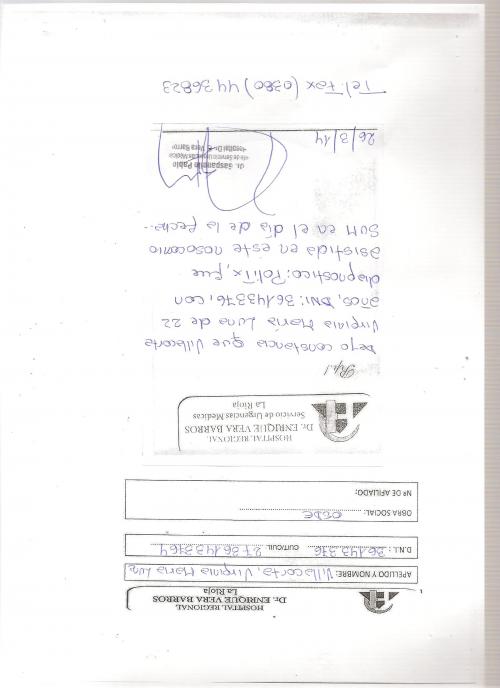 HOSPITAL REGIONAL
Dr. ENRIQUE VERA BARROS
La Rioja
APELLIDO Y NOMBRE: Villacorta, Virginia María Luna
D.N.I.: 36.143.376 CUIT/CUIL 27361433764
OBRA SOCIAL: OSDE
Nº DE AFILIADO:
HOSPITAL REGIONAL
Dr. ENRIQUE VERA BARROS
Servicio de Urgencias Medicas
La Rioja
Dejo constancia que Villacorta
Virginia María Luna de 22
años, DNI: 36143376, con
diagnostico: PoliTx, fue
asistida en este nosocomio
SUM en el día de la fecha.
Dr. Gasparnello Pablo
Jefe de Servicio Urgencias Médica
Hospital Dr. E. Vera Barros
26/3/14
Tel: Fax (0380) 4436823